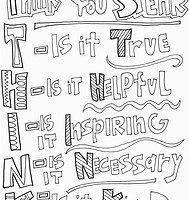 Think You Speak
T - Is it True
H - Is it Helpful
I - Is it Inspiring
N - Is it Necessary
K - Is it Kind